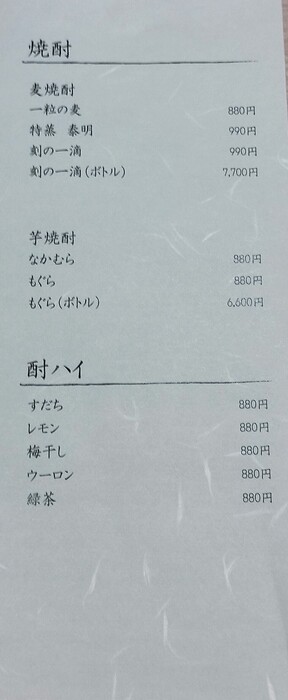 焼酎
麦焼酎
一粒の麦 880円
特蒸 泰明 990円
刻の一滴 990円
刻の一滴(ボトル) 7,700円
芋焼酎
なかむら 880円
もぐら 880円
もぐら(ボトル) 6,600円
酎ハイ
すだち 880円
レモン 880円
梅干し 880円
ウーロン 880円
緑茶 880円